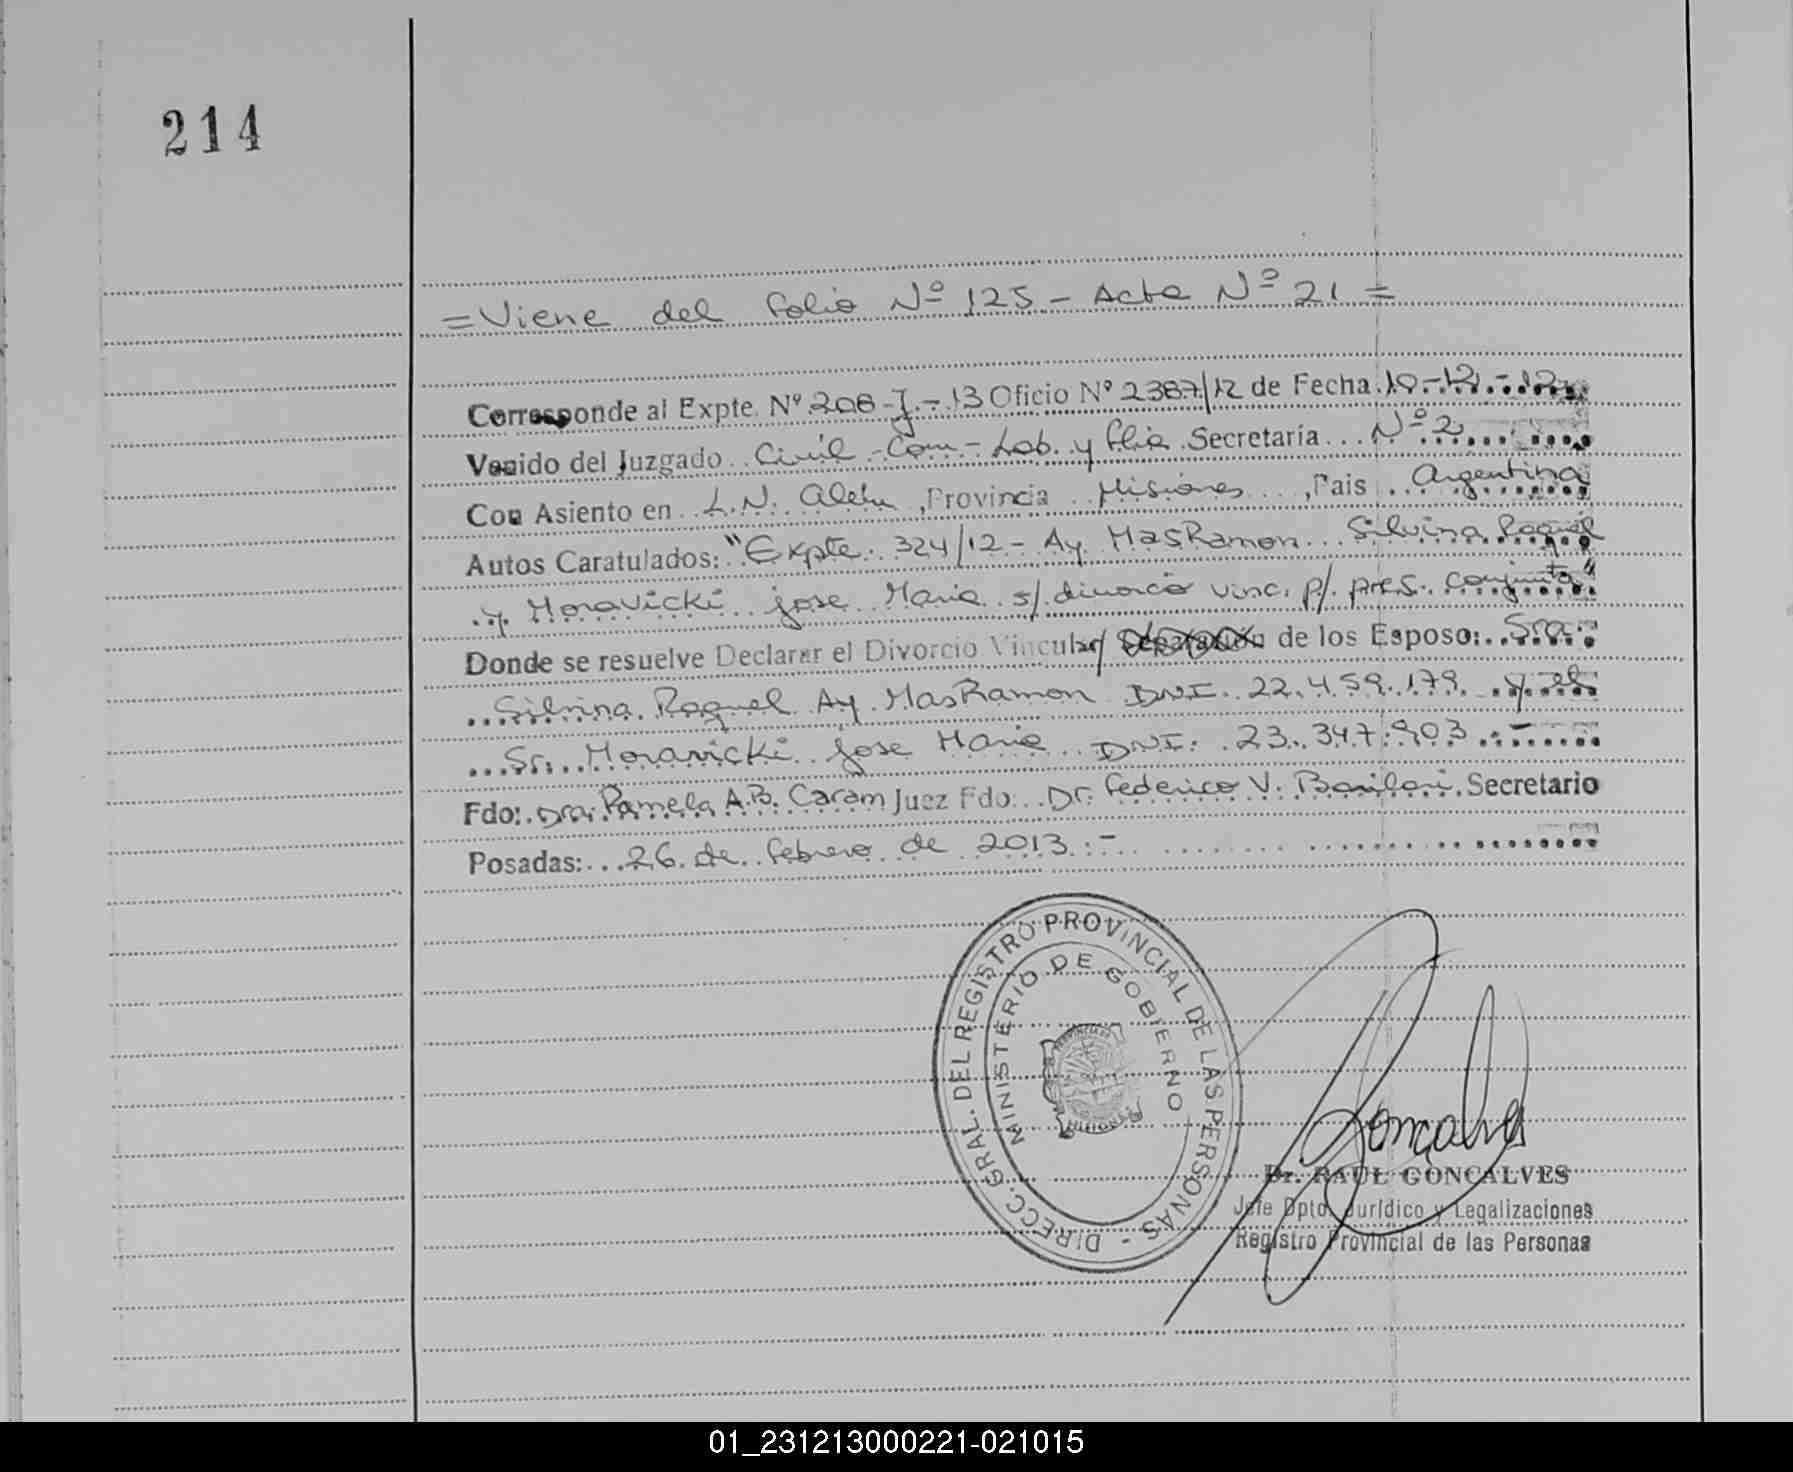 214
= Viene del folio Nº 125 - Acta Nº 21 =
Corresponde al Expte. Nº 208-J-13 Oficio Nº 2387/12 de Fecha 10-12-12
Venido del Juzgado Civil-Com-Lab. y flia Secretaría Nº 2
Con Asiento en L.N. Alem, Provincia Misiones, País Argentina
Autos Caratulados: "Expte. 324/12 - Ay MasRamon Silvina Raquel
y Moravicki jose Maria s/ divorcio vinc. p/ pres. conjunta"
Donde se resuelve Declarar el Divorcio Vincular/ Separación de los Esposo: Sra.
Silvina Raquel Ay MasRamon DNI. 22.459.179 y el
Sr. Moravicki jose Maria DNI: 23.347.903.-
Fdo: Dra. Pamela A.B. Caram Juez Fdo: Dr. Federico V. Secretario
Posadas: 26 de febrero de 2013.-
DIRECC. GRAL. DEL REGISTRO PROVINCIAL DE LAS PERSONAS -
MINISTERIO DE GOBIERNO
MISIONES
Goncalves
Dr. RAUL GONCALVES
Jefe Dpto. Jurídico y Legalizaciones
Registro Provincial de las Personas
01_231213000221-021015